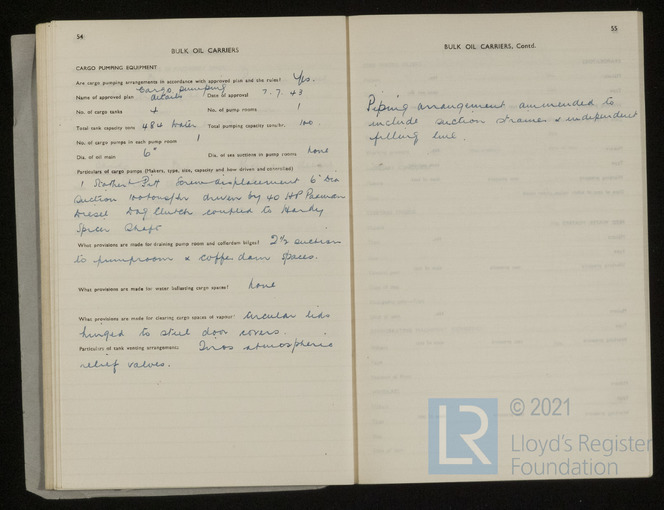 54
BULK OIL CARRIERS
CARGO PUMPING EQUIPMENT
Are cargo pumping arrangements in accordance with approved plan and the rules? Yes.
Name of approved plan Cargo pumping details Date of approval 7.7.43
No. of cargo tanks 4 No. of pump rooms 1
Total tank capacity tons 484 water Total pumping capacity tons/hr. 100
No. of cargo pumps in each pump room 1
Dia. of oil main 6" Dia. of sea suctions in pump rooms none
Particulars of cargo pumps (Makers, type, size, capacity and how driven and controlled)
1 Stothert Pitt displacement 6" Dia
suction 100 tons/hr driven by 40 HP Paxman
Diesel Dog Clutch coupled to Hardy
Spicer Shaft
What provisions are made for draining pump room and cofferdam bilges? 2½ suction
to pumproom & cofferdam spaces.
What provisions are made for water ballasting cargo spaces? None
What provisions are made for clearing cargo spaces of vapour? Circular lids
hinged to steel door covers.
Particulars of tank venting arrangements atmospheric
relief valves.
55
BULK OIL CARRIERS, Contd.
Piping arrangement ammended to
include suction strainer & independent
filling line.
LR
© 2021
Lloyd's Register
Foundation